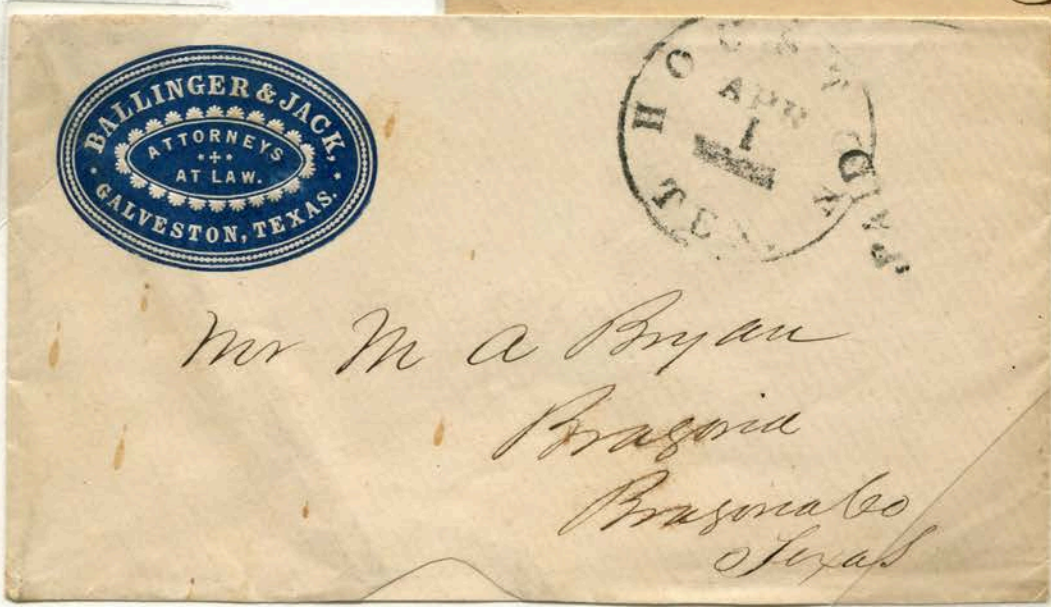 BALLINGER & JACK,
ATTORNEYS
AT LAW.
GALVESTON, TEXAS.
HOUSTON
APR
1
TEX.
PAID
Mr M A Bryan
Brazoria
Brazoria Co
Texas